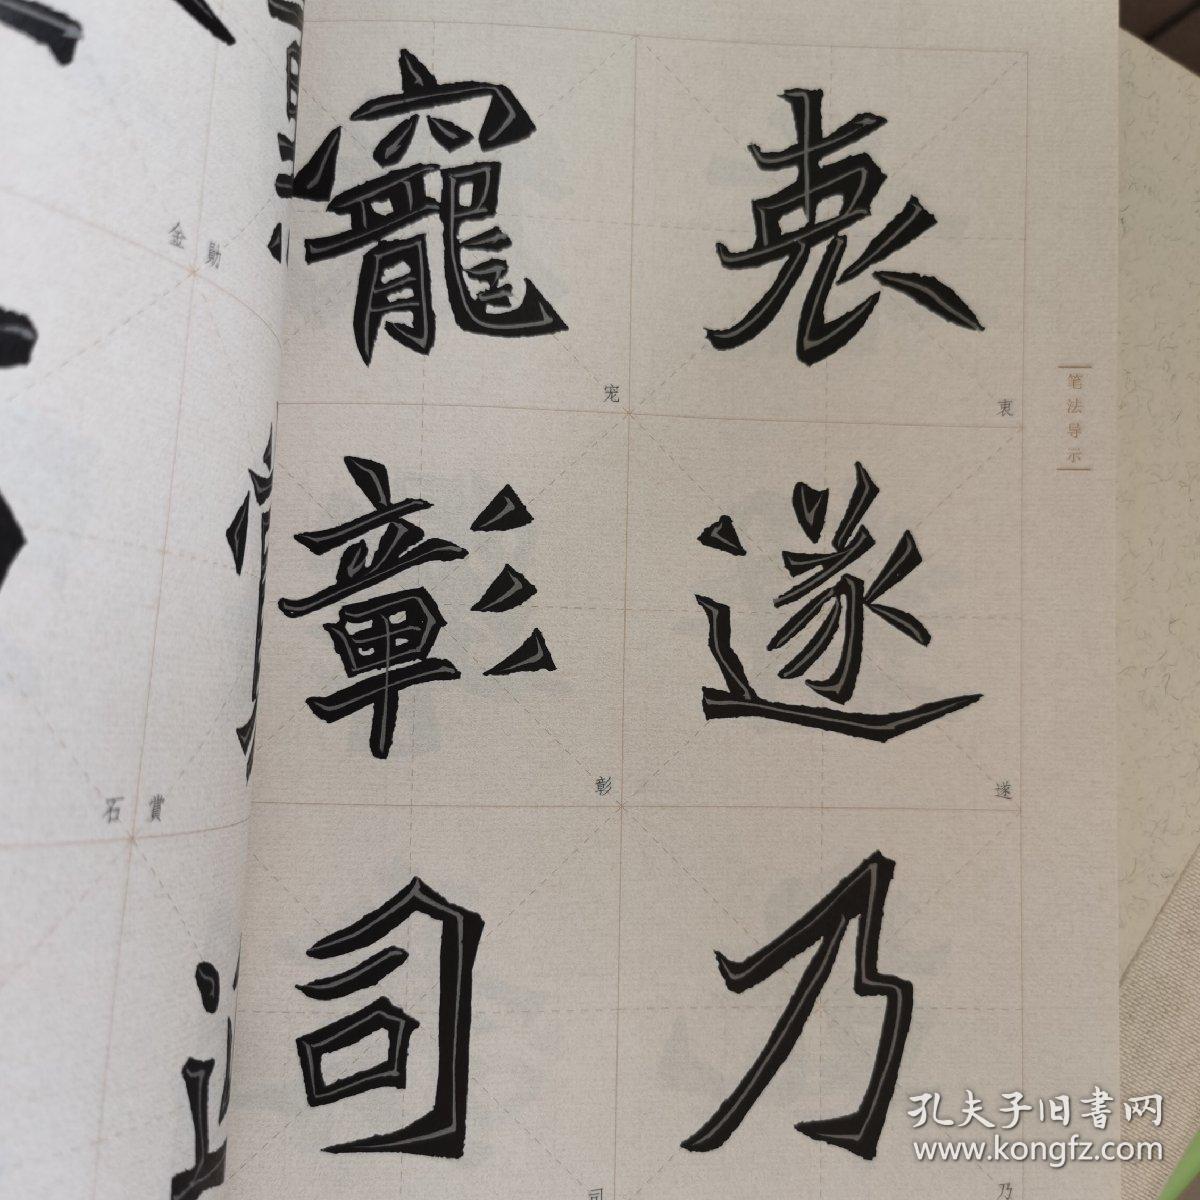 衷
遂
乃
寵
彰
司
衷
遂
乃
宠
彰
司
笔法导示
金 勛
石 賞
孔夫子旧書网
www.kongfz.com